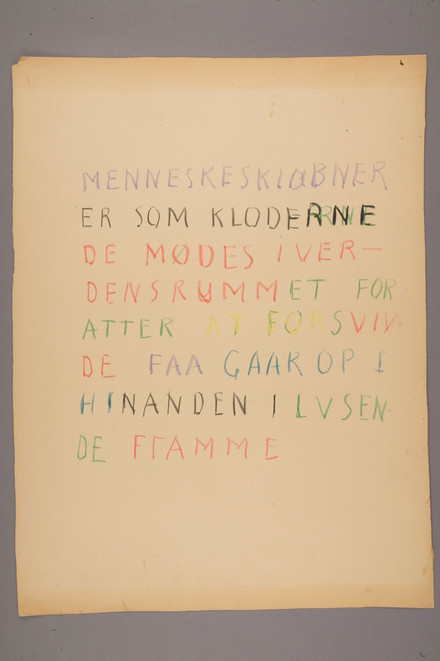 MENNESKESKIABNER
ER SOM KLODERNE
DE MØDES I VER—
DENSRUMMET FOR
ATTER AT FORSVIV-
DE FAA GAAR OP I
HINANDEN I LVSEN-
DE FTAMME